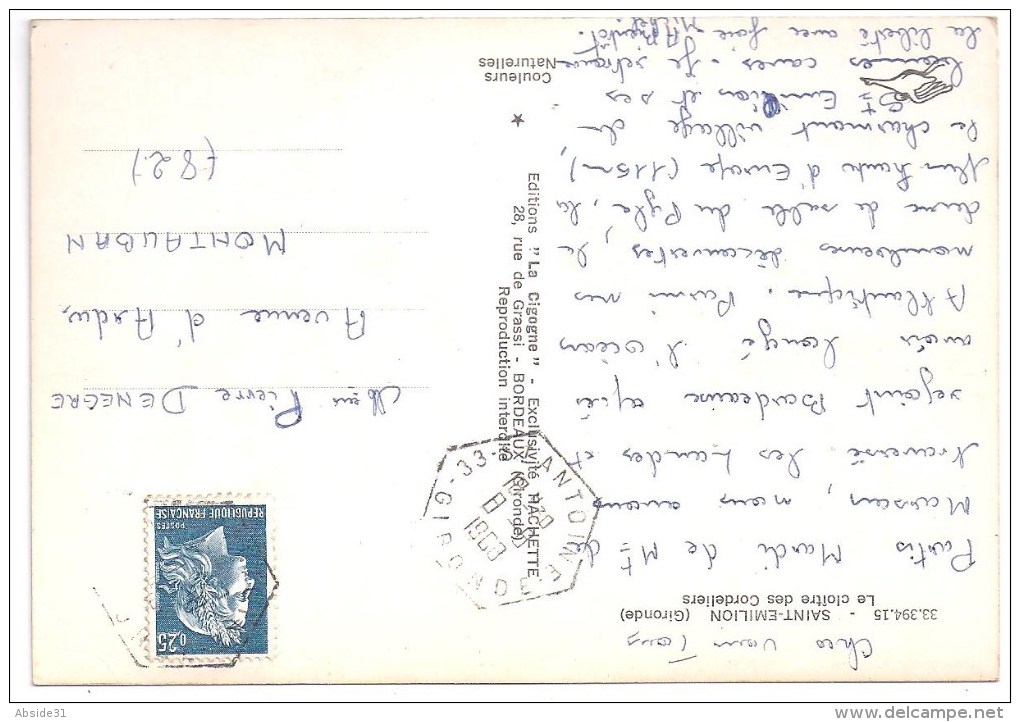 33.394.15 - SAINT-EMILION (Gironde)
Le cloître des Cordeliers
Partis Mardi de Mt
Marsan, nous avons
traversé les Landes et
rejoint Bordeaux après
avoir longé l'Océan
Atlantique. Parmi nos
nombreuses découvertes la
dune de sable du Pyla, la
plus haute d'Europe (115 m),
le charmant village de
St Emilion et ses
caves. Je retrouve
la liberté avec joie
A Bientôt.
Michel
Couleurs
Naturelles
Editions "La Cigogne" - Exclusivité HACHETTE
28, rue de Grassi - BORDEAUX (Gironde)
Reproduction interdite
33 - ANTOINE
1968
GIRONDE
0,25
POSTES
REPUBLIQUE FRANÇAISE
Pierre DENEGRE
Avenue d'Ardus
MONTAUBAN
(82)
Abside31
delcampe.net